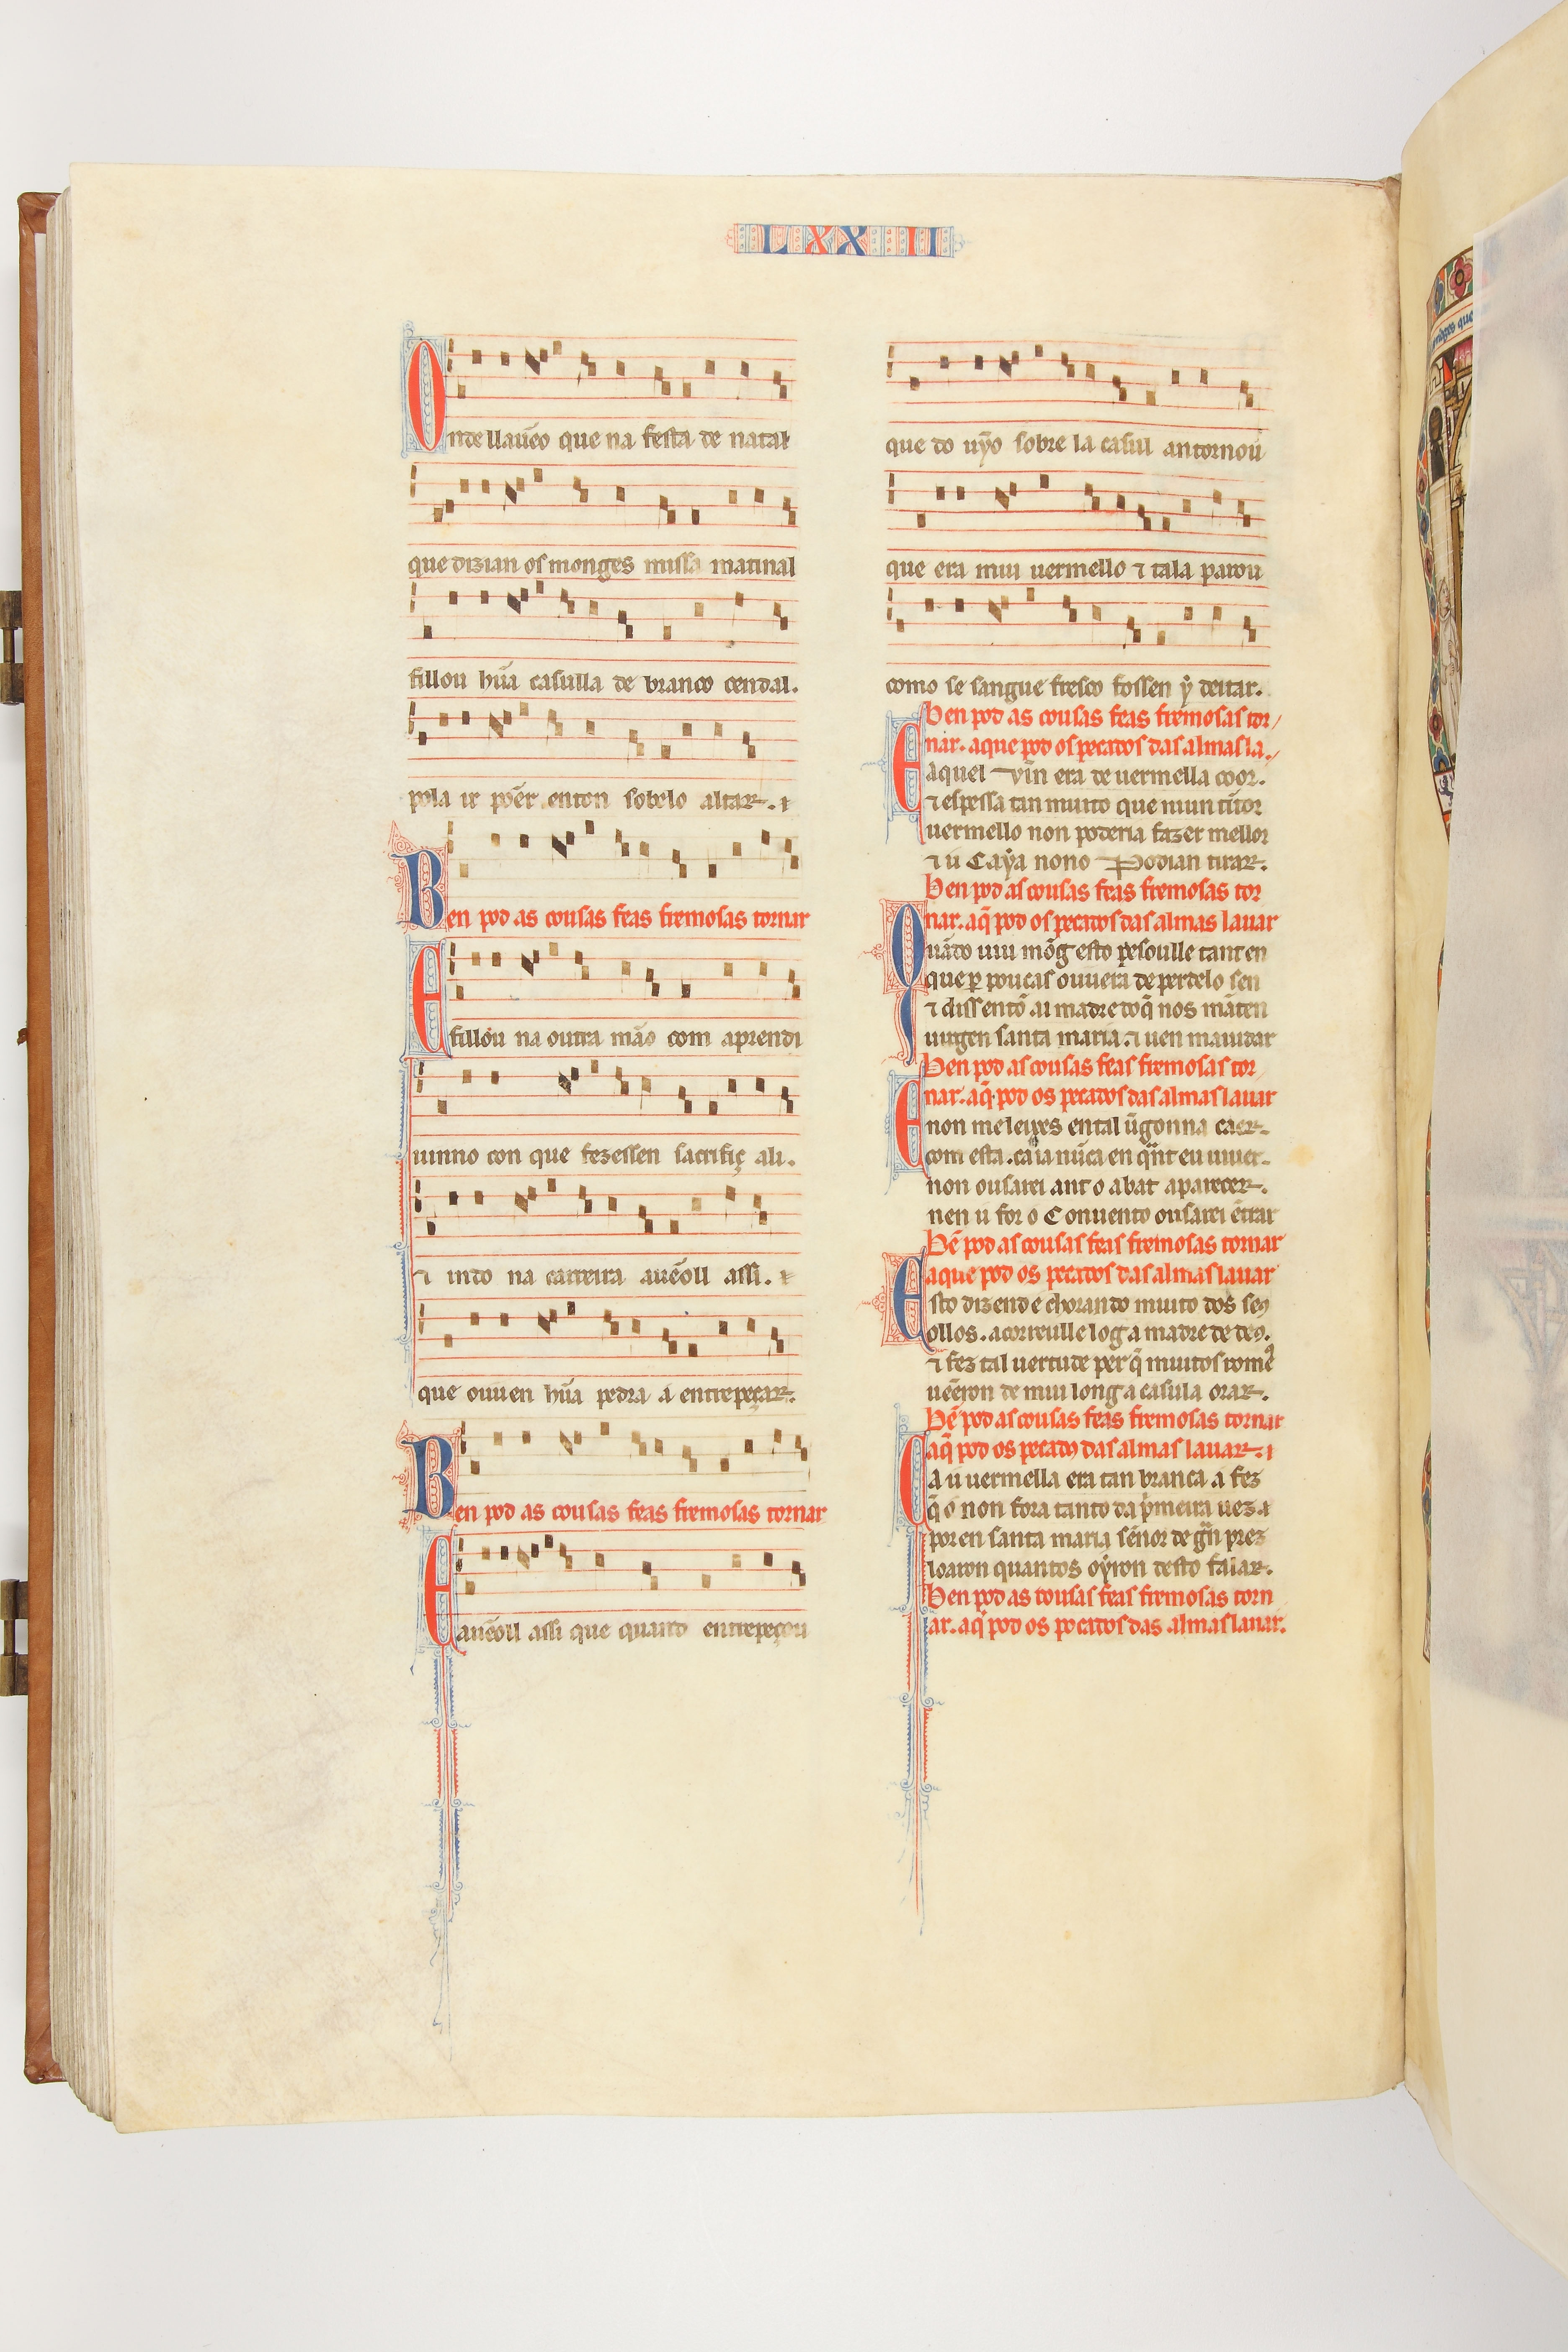 LXXII
Onde llauẽo que na festa de natal
que dizian os monges missa matinal
fillou hũa casulla de branco cendal.
pola ir põer enton sobelo altar.
Ben pod as cousas feas fremosas tornar
E fillou na outra mão com aprendi
uinno con que fezessen sacrifiç ali.
⁊ indo na carreira auẽoll assi.
que ouuen hũa pedra a entrepeçar.
Ben pod as cousas feas fremosas tornar
E auẽoll assi que quando entrepeçou
que do uỹo sobre la casul antornou
que era mui uermello ⁊ tala parou
como se sangue fresco fossen ẏ deitar.
Ben pod as cousas feas fremosas tor
nar. aque pod os pecados das almas la.
E aquel vin era de uermella coor.
⁊ espessa tan muito que niun tĩtor
uermello non poderia fazer mellor
⁊ u Caẏa nono Podian tirar.
Ben pod as cousas feas fremosas tor
nar. aq̃ pod os pecados das almas lauar
Quãdo uiu mõg esto pesoulle tanten
que ꝑ poucas ouuera de perdelo sen
⁊ diss entõ ai madre doq̃ nos mãten
uirgen santa maria. ⁊ uen maiudar
Ben pod as cousas feas fremosas tor
nar. aq̃ pod os pecados das almas lauar
E non me leixes en tal ũgonna caer.
com esta. ca ia nũca en q̃nt eu uiuer.
non ousarei ant o abat aparecer.
nen u for o Conuento ousarei ẽtrar
Bẽ pod as cousas feas fremosas tornar
aque pod os pecados das almas lauar
Esto dizend e chorando muito dos seꝯ
ollos. acorreulle log a madre de deꝯ.
⁊ fez tal uertude per q̃ muitos romeꝯ
uẽeron de mui long a casula orar.
Bẽ pod as cousas feas fremosas tornar
aq̃ pod os pecadoꝯ das almas lauar.
Ca u uermella era tan branca a fez
q̃ o non fora tanto da p̃meira uez. ⁊
por en santa maria sẽnor de grã prez
loaron quantos oẏron desto falar.
Ben pod as cousas feas fremosas torn
ar. aq̃ pod os pecados das almas lauar.